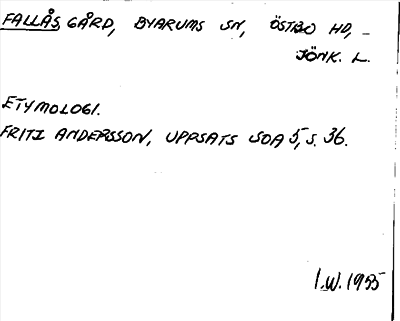 FALLÅS GÅRD, BYARUMS SN, ÖSTBO HD, -
JÖNK. L.
ETYMOLOGI.
FRITZ ANDERSSON, UPPSATS SOA 5, S. 36.
I.W. 1955